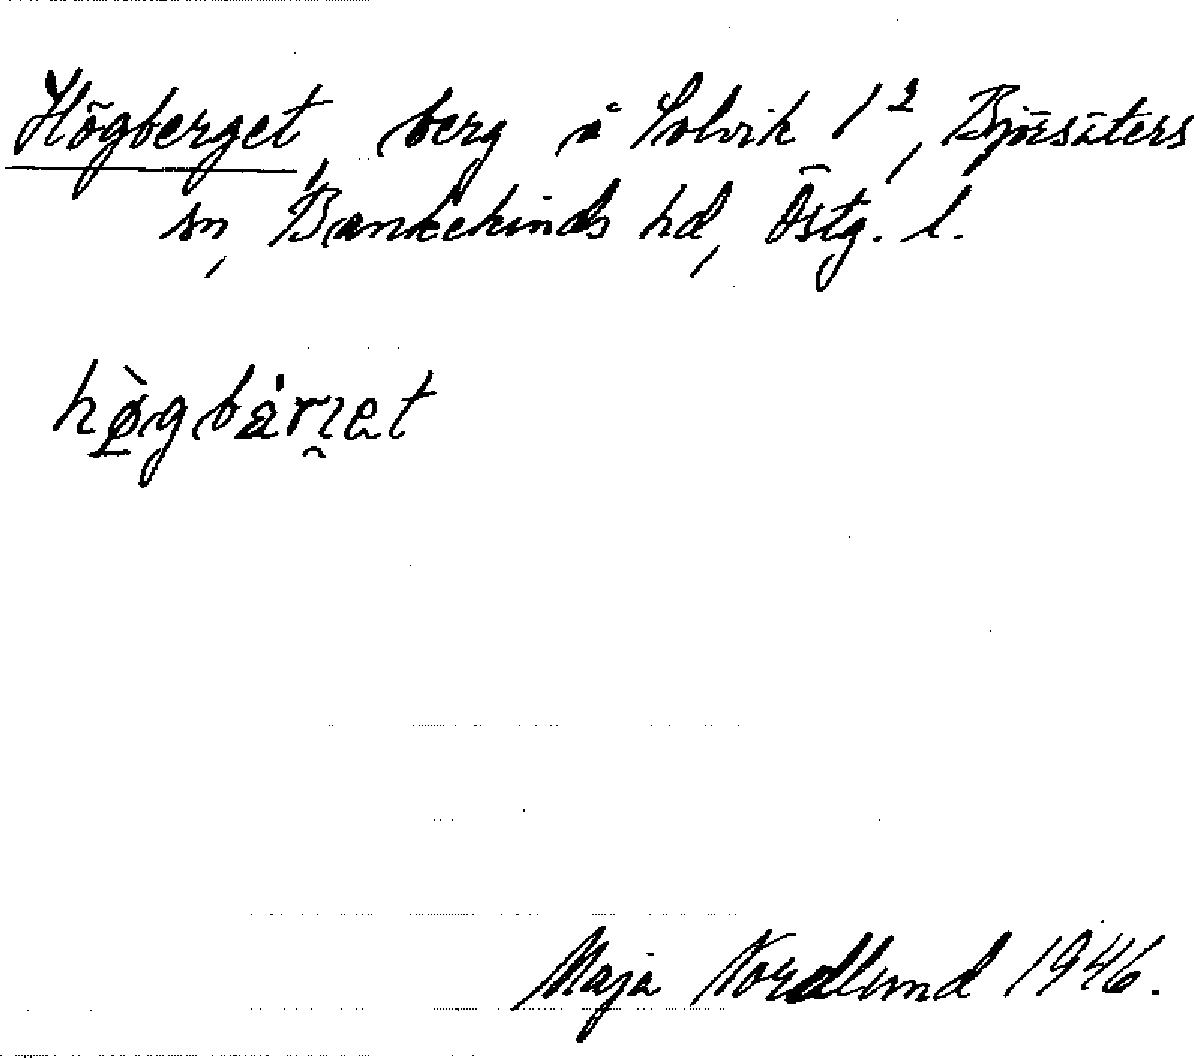 Högberget, berg å Solvik 1², Björsäters
sn, Bankekinds hd, Östg. l.
Maja Nordlund 1946.